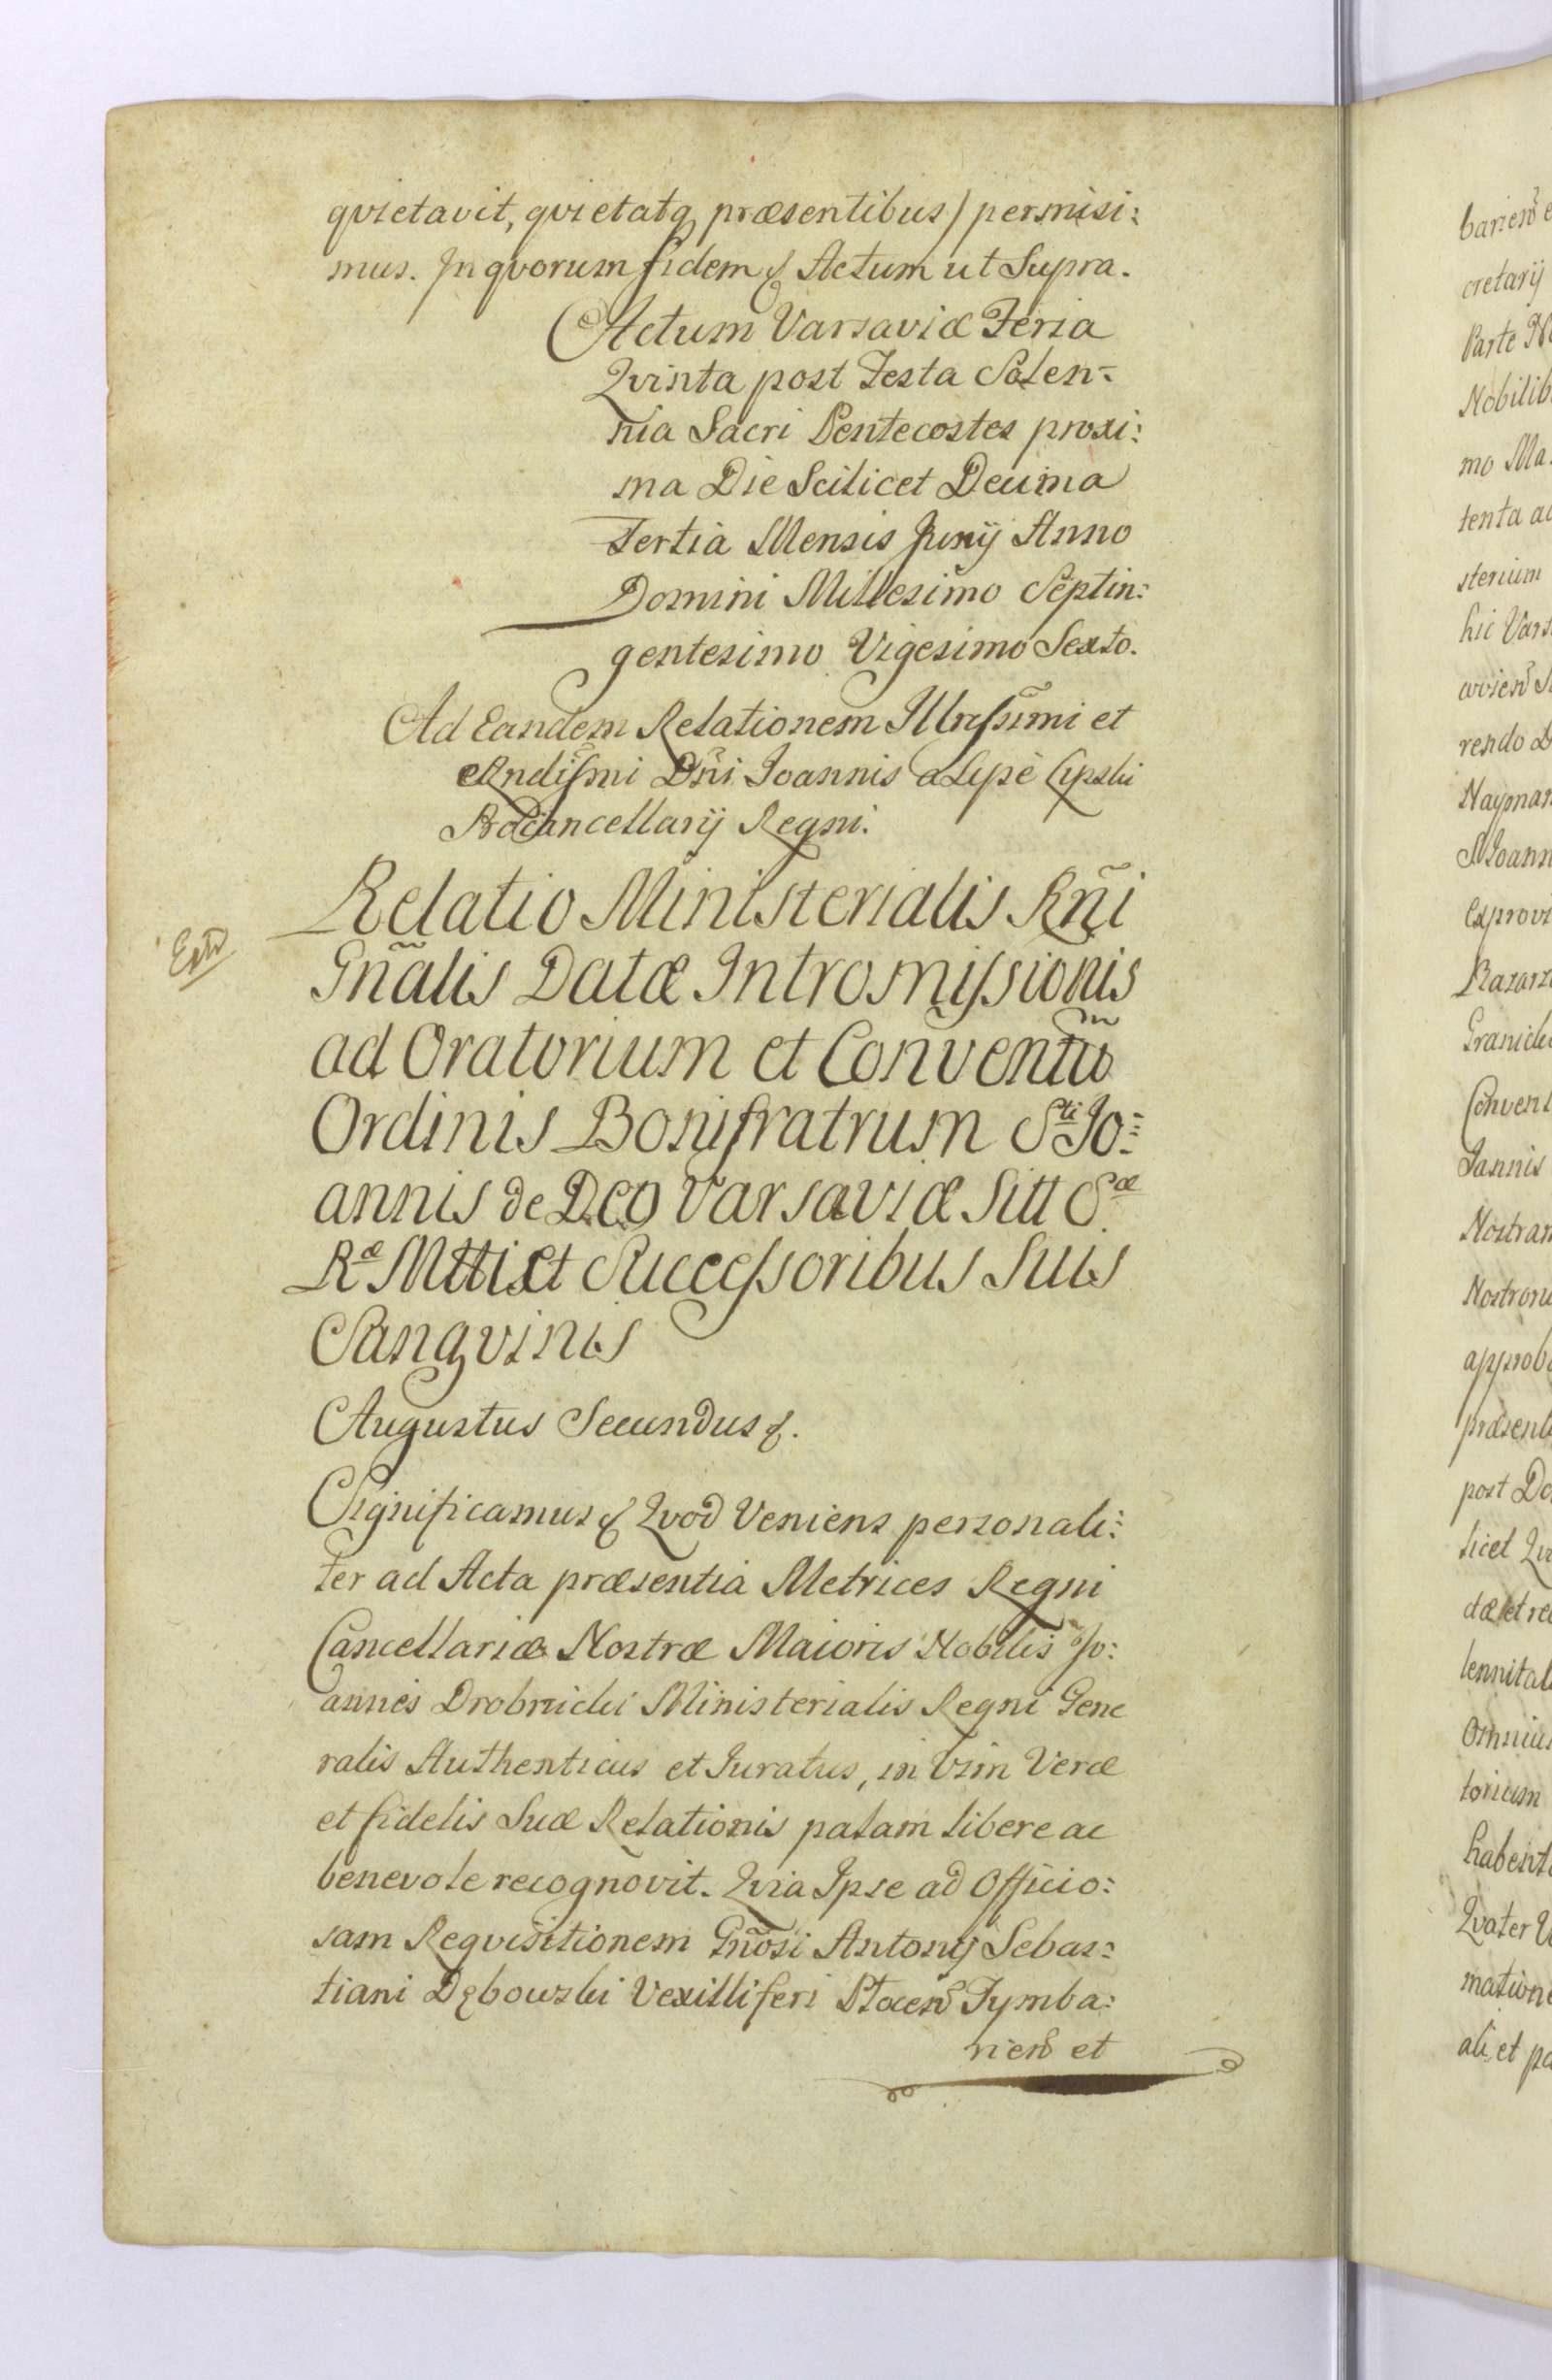 qvietavit, qvietatq præsentibus) permisi:
mus. In qvorum fidem & Actum ut Supra.
Actum Varsaviæ Feria
Qvinta post Festa Solen=
nia Sacri Pentecostes proxi:
ma Die Scilicet Decima
Tertia Mensis Junij Anno
Domini Millesimo Septin:
gentesimo Vigesimo Sexto.
Ad Eandem Relationem Illrissimi et
Rndissmi Dni Joannis a Lipe Lipski
Procancellarij Regni.
Relatio Ministerialis Rni
Extr
Gnalis Datæ Intromissionis
ad Oratorium et Conventum
Ordinis Bonifratrum Sti Jo:
annis de Deo Varsaviæ Sitt Sæ
Ræ Mtti et Successoribus Suis
Sangvinis
Augustus Secundus &.
Significamus & Qvod Veniens personali:
ter ad Acta præsentia Metrices Regni
Cancellariæ Nostræ Maioris Nobilis Jo:
annes Drobnicki Ministerialis Regni Gene
ralis Authenticus et Juratus, in Vim Veræ
et fidelis Suæ Relationis palam libere ac
benevole recognovit. Qvia Ipse ad Officio:
sam Reqvisitionem Gnosi Antonij Sebas:
tiani Dębowski Vexilliferi Plocen Tymba:
rien et
barien e
cretarij
Parte
Nobilib
mo Ma
tenta ad
sterium
hic Vars
rendo D
Joann
exprovi
Granich
Convent
Joannis
Nostram
Nostrorum
approb
præsent
post Do
licet Qv
dæ et re
lennitat
Omnium
torium
habent
Qvater V
matione
ali et pa